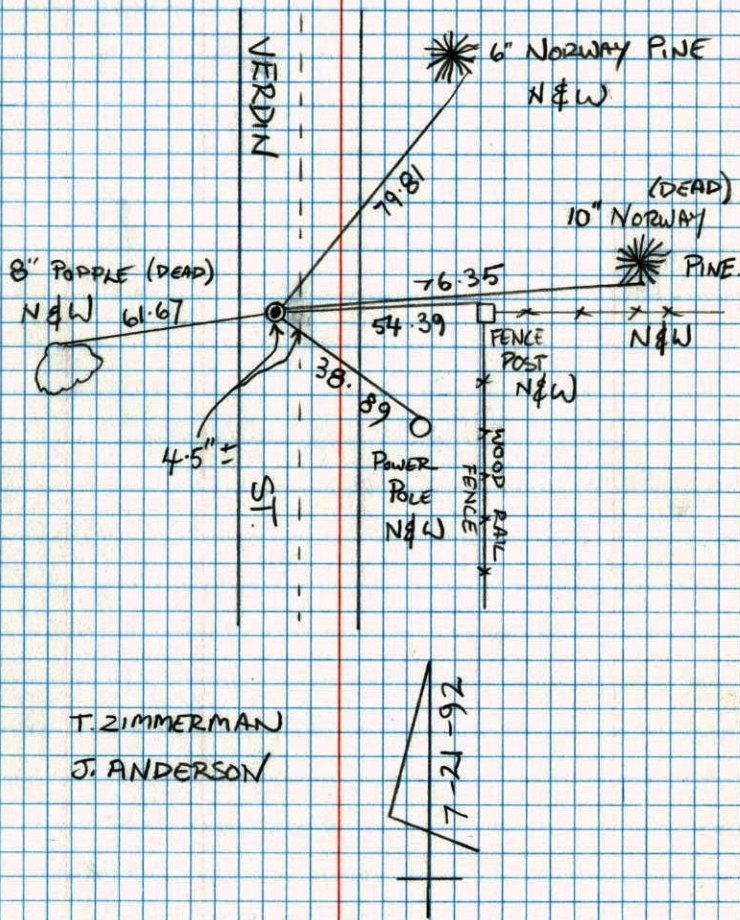 VERDIN
ST.
6" NORWAY PINE
N&W
79.81
(DEAD)
10" NORWAY
PINE.
N&W
8" POPPLE (DEAD)
N&W
61.67
76.35
54.39
FENCE
POST
N&W
38.89
4.5" ±
POWER
POLE
N&W
WOOD RAIL
FENCE
T. ZIMMERMAN
J. ANDERSON
7-21-92